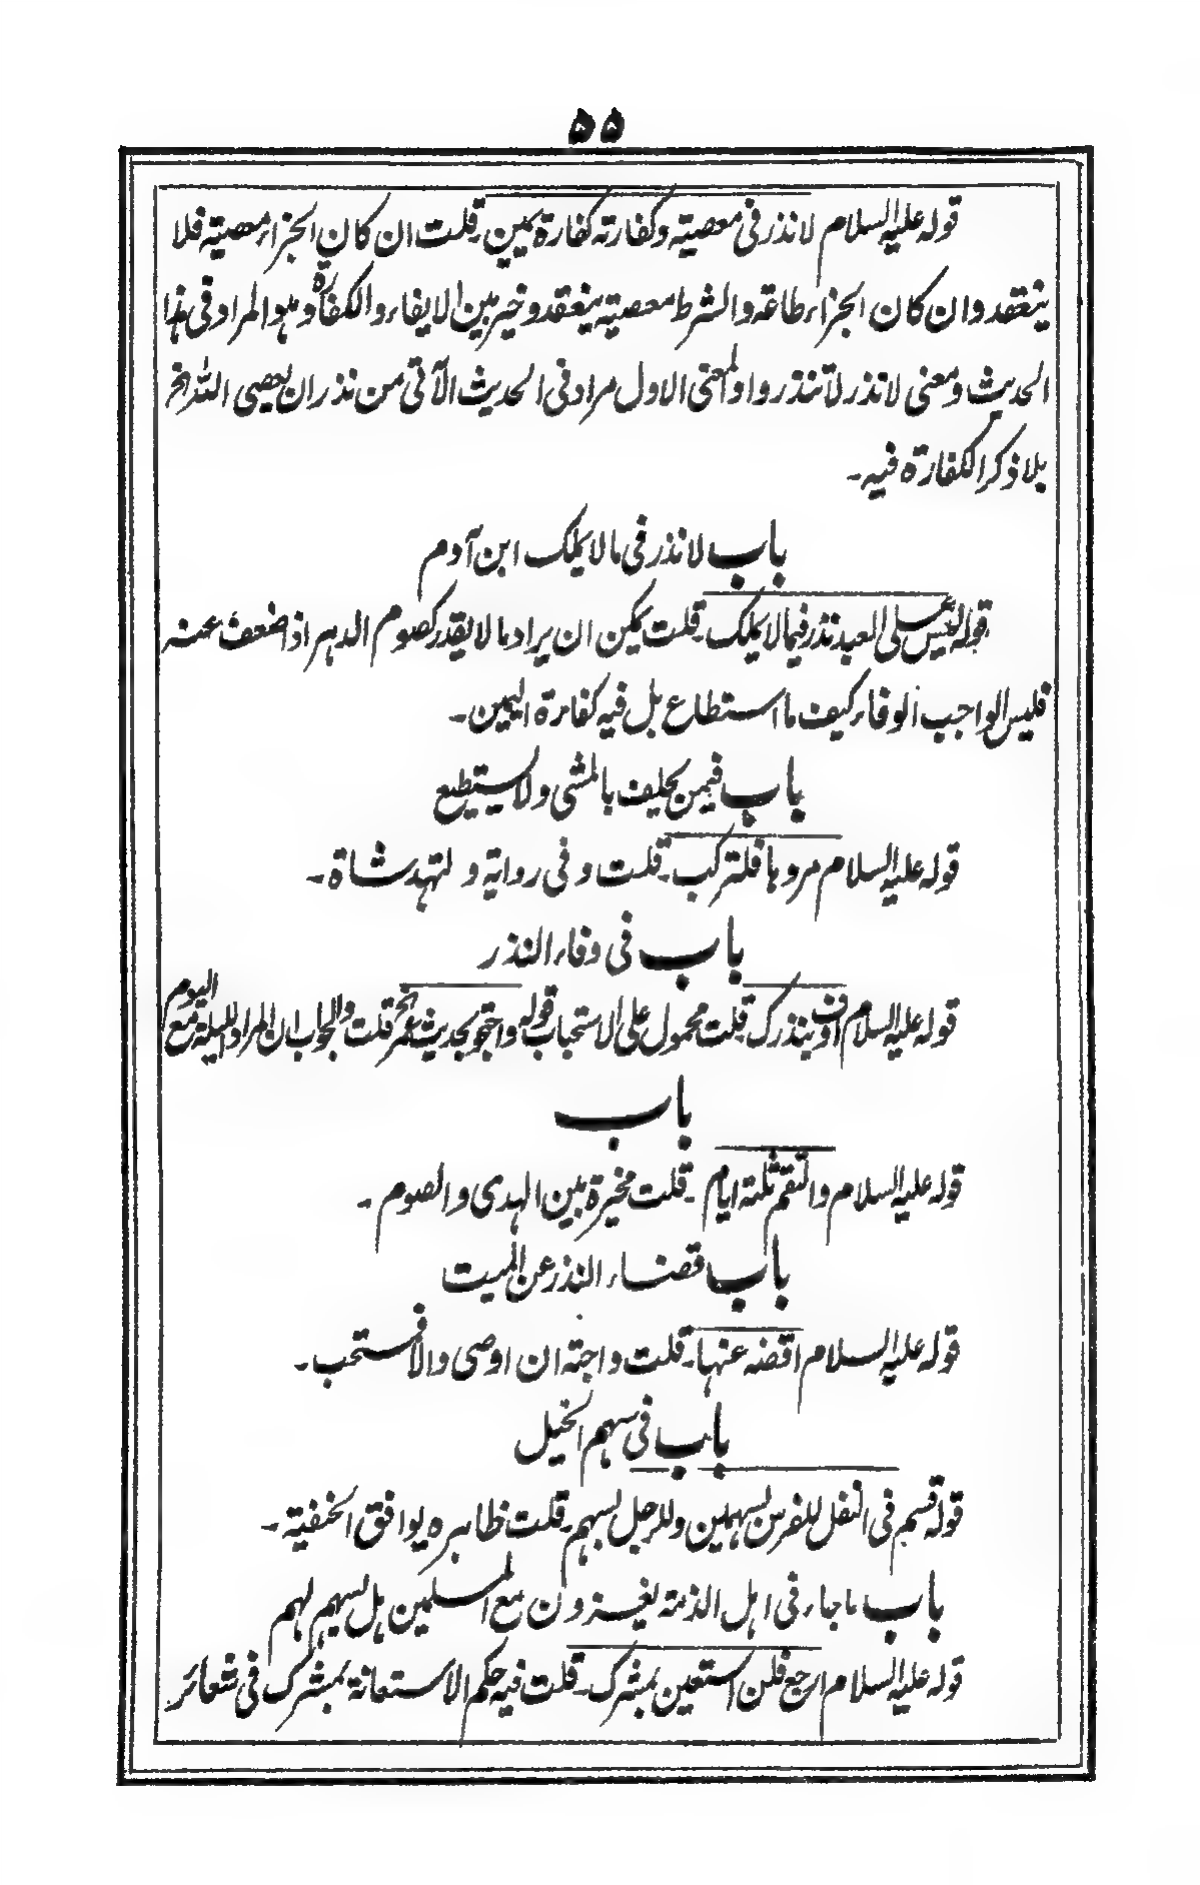 ٥٥
قوله عليه السلام لا نذر في معصية وكفارته كفارة يمين۔ قلت ان كان الجزاء معصية فلا
ينعقد وان كان الجزاء طاعة والشرط معصية ينعقد وخير بين الايفاء والكفارة وهو المراد في هذا
الحديث ومعنى لا نذر لا تنذروا والمعنى الاول مراد في الحديث الآتى من نذر ان يعصى الله الخ
بلا ذكر الكفارة فيه۔
باب لا نذر في ما لا يملك ابن آدم
قوله ليس على العبد نذر فيما لا يملك۔ قلت يمكن ان يراد ما لا يقدر كصوم الدهر اذا ضعف عنه
فليس الواجب الوفاء كيف ما استطاع بل فيه كفارة اليمين۔
باب فيمن يحلف بالمشى ولا يستطيع
قوله عليه السلام مروها فلتركب۔ قلت وفي رواية ولتهد شاة۔
باب في وفاء النذر
قوله عليه السلام اوف بنذرك۔ قلت محمول على الاستحباب قوله واحتجوا بحديث عمر الخ قلت والجواب ان المراد الليلة مع اليوم
باب
قوله عليه السلام والتقم ثلثة ايام۔ قلت مخيرة بين الهدى والصوم۔
باب قضاء النذر عن الميت
قوله عليه السلام اقضه عنها۔ قلت واجبة ان اوصى والا فستحب۔
باب في سهم الخيل
قوله قسم في النفل للفرس بسهمين وللرجل بسهم۔ قلت ظاهره يوافق الحنفية۔
باب ما جاء في اهل الذمة يغزون مع المسلمين هل يسهم لهم
قوله عليه السلام ارجع فلن استعين بمشرك۔ قلت فيه حكم الاستعانة بمشرك في شعائر